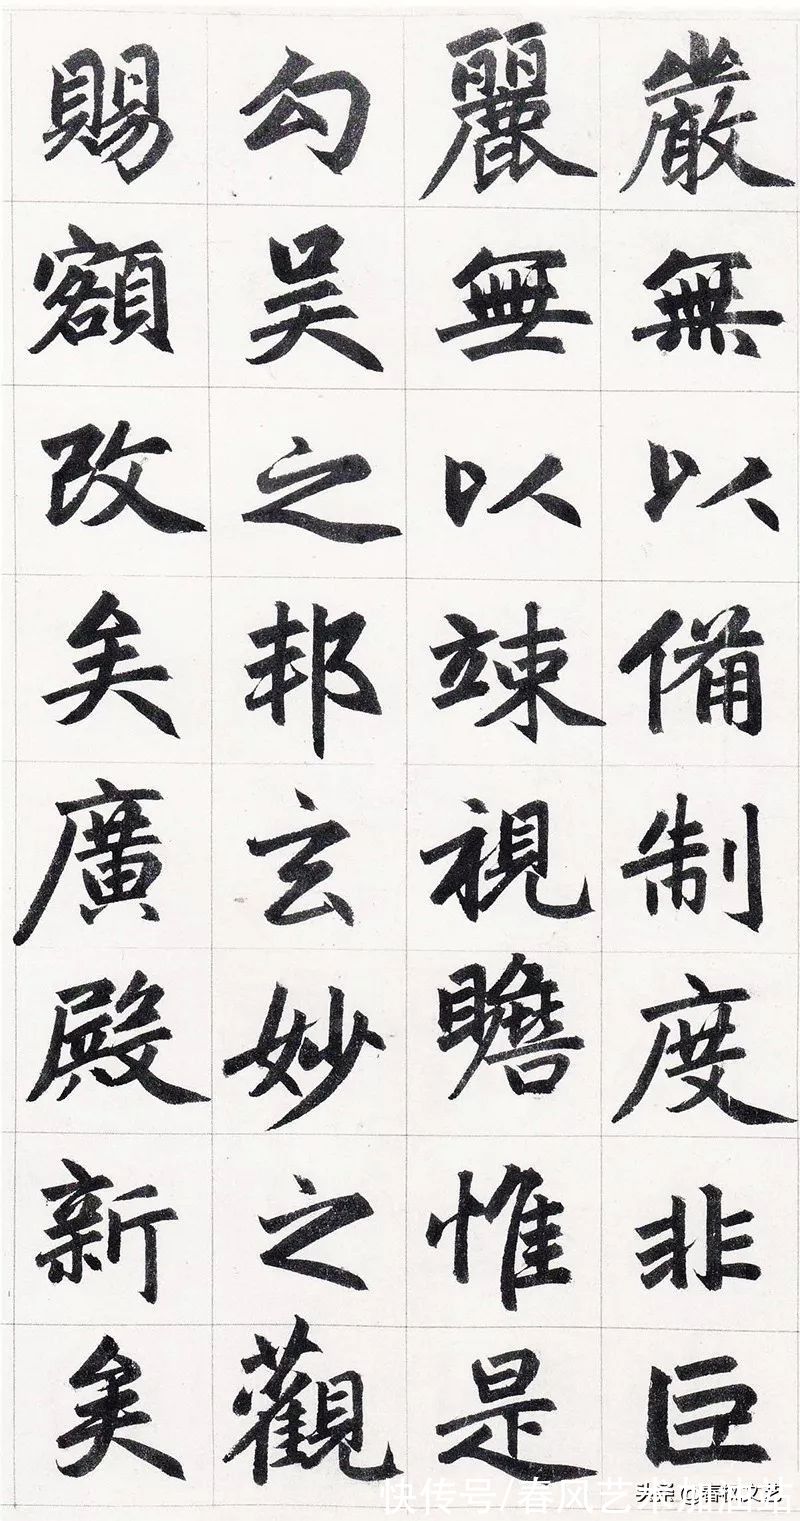 嚴無以備制度非巨
麗無以竦視瞻惟是
勾吴之邦玄妙之觀
賜額改矣廣殿新矣
快传号/春风艺术加油站